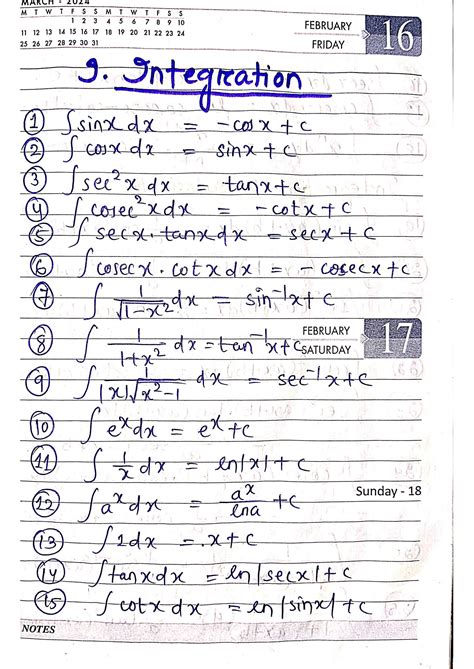 MARCH - 2024
M T W T F S S M T W T F S S
1 2 3 4 5 6 7 8 9 10
11 12 13 14 15 16 17 18 19 20 21 22 23 24
25 26 27 28 29 30 31
FEBRUARY
FRIDAY
16
9. Integration
① ∫sinx dx = -cosx + c
② ∫cosx dx = sinx + c
③ ∫sec²x dx = tanx + c
④ ∫cosec²x dx = -cotx + c
⑤ ∫secx·tanx dx = secx + c
⑥ ∫cosecx·cotx dx = -cosecx + c
⑦ ∫ 1/√(1-x²) dx = sin⁻¹x + c
FEBRUARY
SATURDAY
17
⑧ ∫ 1/(1+x²) dx = tan⁻¹x + c
⑨ ∫ 1/(|x|√(x²-1)) dx = sec⁻¹x + c
⑩ ∫eˣdx = eˣ + c
⑪ ∫ 1/x dx = ln|x| + c
Sunday - 18
⑫ ∫aˣdx = aˣ/lna + c
⑬ ∫1dx = x + c
⑭ ∫tanx dx = ln|secx| + c
⑮ ∫cotx dx = ln|sinx| + c
NOTES